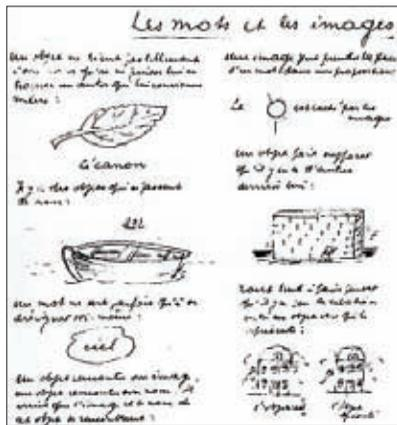 Les mots et les images
Un objet ne tient pas tellement
à son nom qu'on ne puisse lui en
trouver un autre qui lui convienne
mieux :
Le canon
Il y a des objets qui se passent
de nom :
Un mot ne sert parfois qu'à se
désigner soi-même :
ciel
Un objet rencontre son image,
un objet rencontre son nom. Il
arrive que l'image et le nom de
cet objet se rencontrent :
Une image peut prendre la place
d'un mot dans une proposition
Le
est caché par les
nuages
Un objet fait supposer
qu'il y en a d'autres
derrière lui :
Tout tend à faire penser
qu'il y a peu de relation
entre un objet et ce qui le
représente :